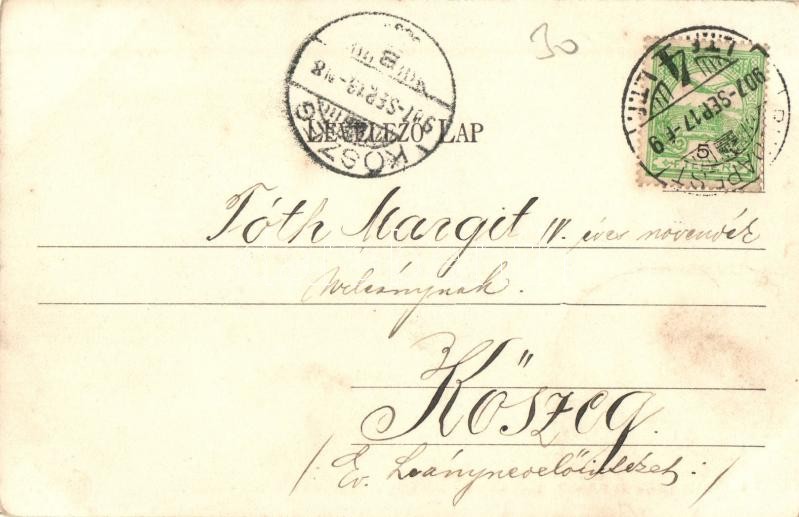 30
KŐSZEG
907 SEP. 18
B
BUDAPEST
907-SEP.17
5
LEVELEZŐ LAP
Tóth Margit IV. éves növendék
Kőszeg.
/: Ev. Leánynevelőintézet :/